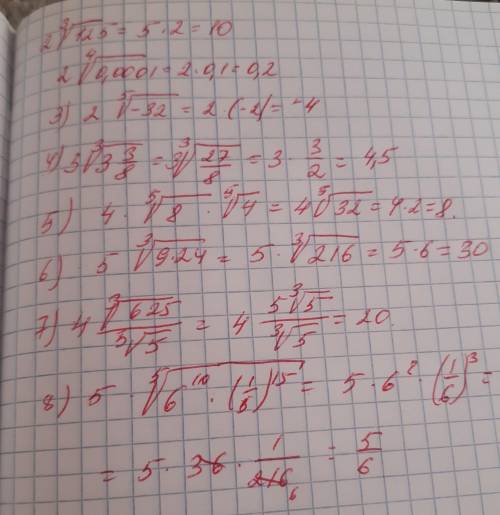 2∛125 = 5·2 = 10
2∜0,0001 = 2·0,1 = 0,2
3) 2 ⁵√-32 = 2 (-2) = -4
4) 3∛(3 3/8) = 3∛(27/8) = 3 · 3/2 = 4,5
5) 4 · ⁵√8 · ⁵√4 = 4 ⁵√32 = 4·2 = 8.
6) 5 ∛(9·24) = 5 · ∛216 = 5·6 = 30
7) 4 ∛625/∛5 = 4 5∛5/∛5 = 20.
8) 5 · ⁵√(6¹⁰ · (1/6)¹⁵) = 5·6² · (1/6)³ =
= 5 · 36 · 1/216 6 = 5/6